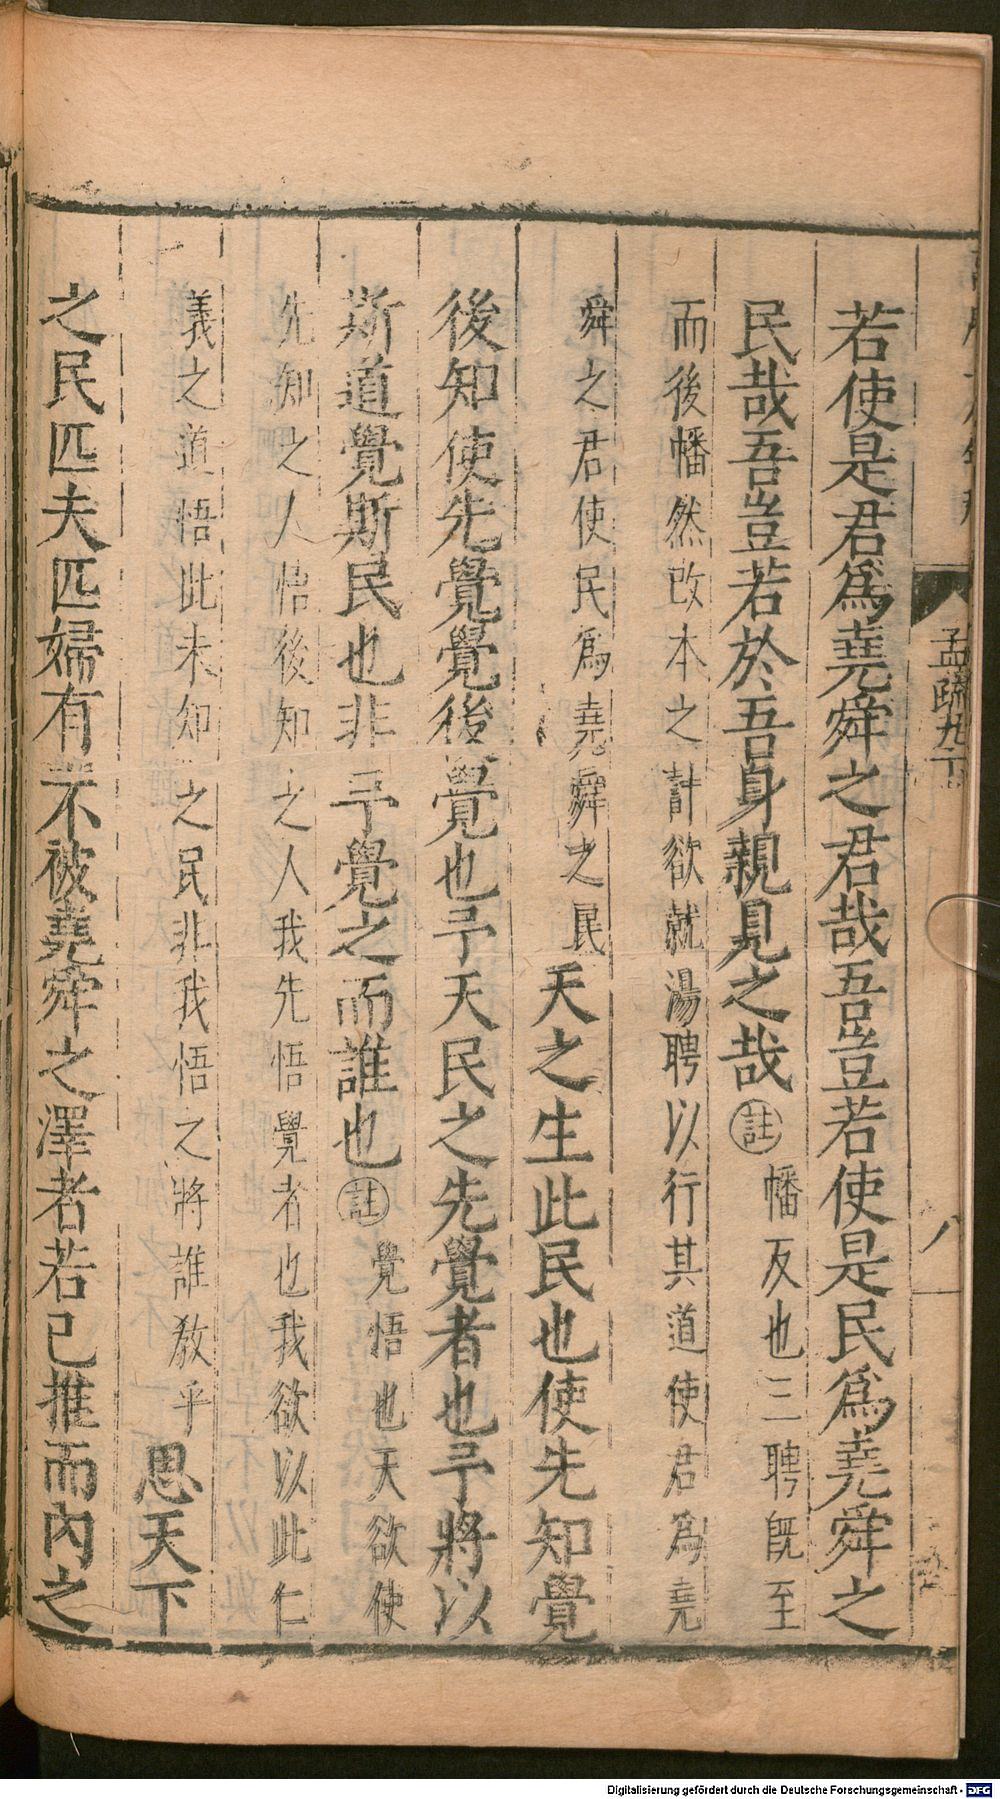 孟疏九下
八
若使是君爲堯舜之君哉吾豈若使是民爲堯舜之
民哉吾豈若於吾身親見之哉註幡反也三聘旣至
而後幡然改本之計欲就湯聘以行其道使君爲堯
舜之君使民爲堯舜之民天之生此民也使先知覺
後知使先覺覺後覺也予天民之先覺者也予將以
斯道覺斯民也非予覺之而誰也註覺悟也天欲使
先知之人悟後知之人我先悟覺者也我欲以此仁
義之道悟此未知之民非我悟之將誰教乎思天下
之民匹夫匹婦有不被堯舜之澤者若已推而內之
Digitalisierung gefördert durch die Deutsche Forschungsgemeinschaft - DFG